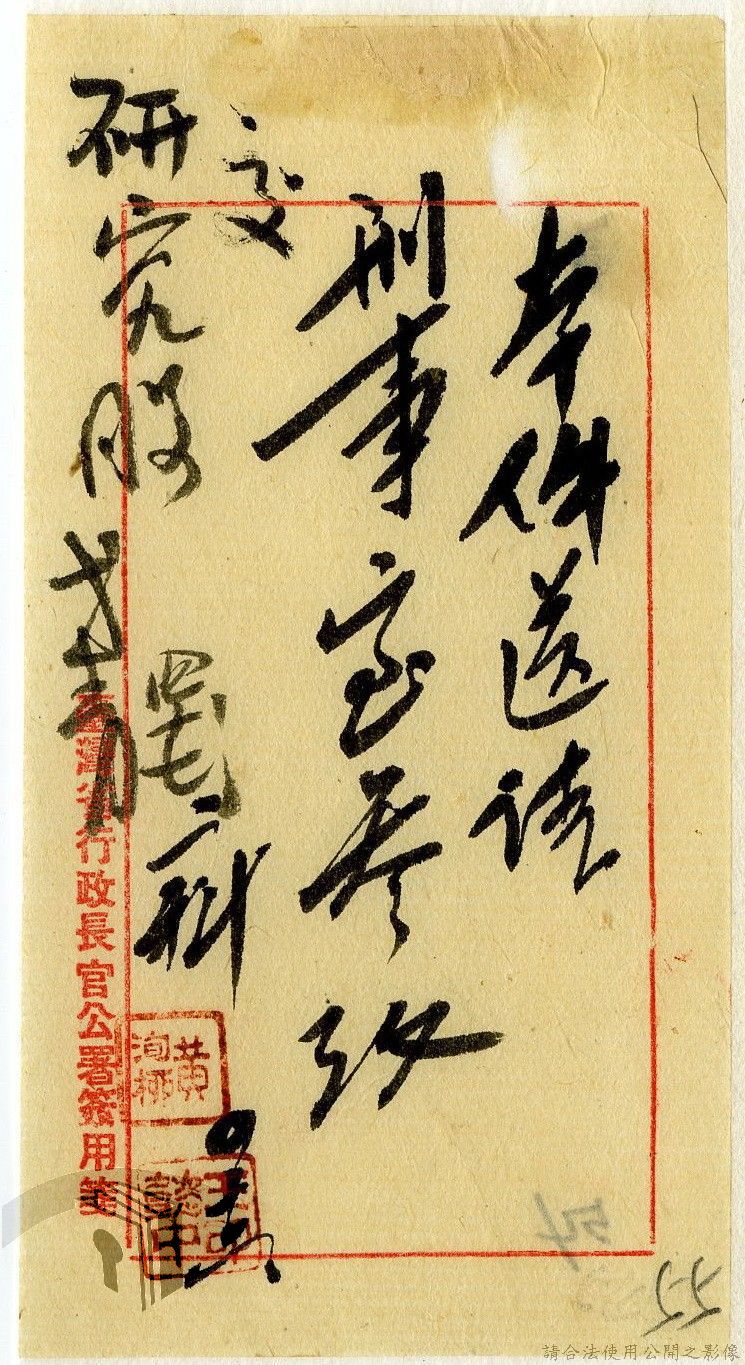 本件送請
刑事室參攷
二科
交
研究股
臺灣省行政長官公署簽用箋
黃
55
54
請合法使用公開之影像